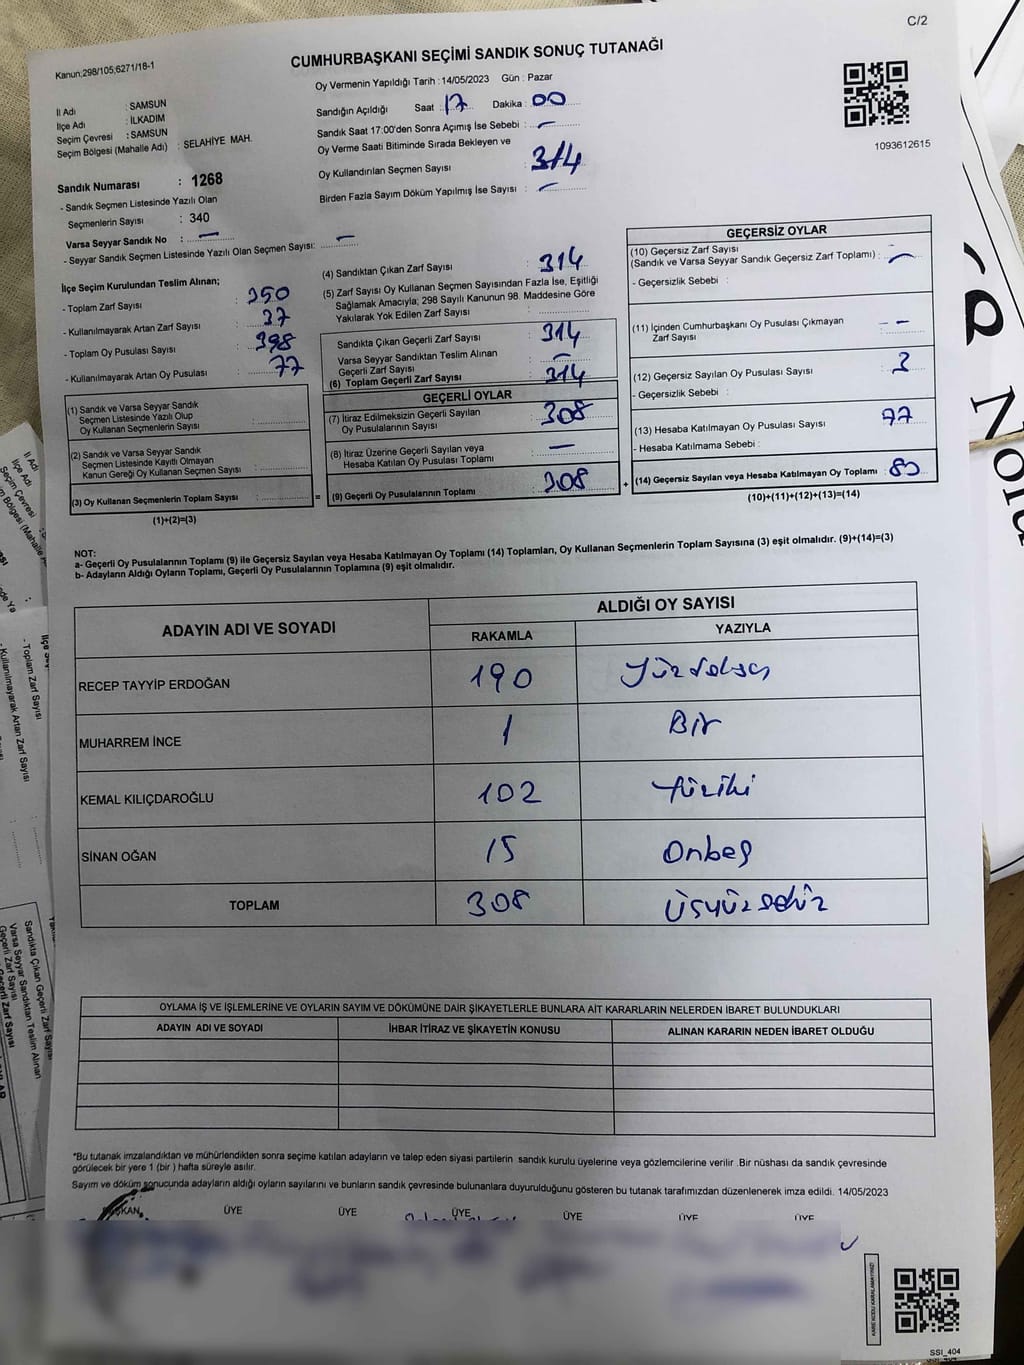 C/2
Kanun;298/105;6271/18-1
CUMHURBAŞKANI SEÇİMİ SANDIK SONUÇ TUTANAĞI
Oy Vermenin Yapıldığı Tarih : 14/05/2023 Gün : Pazar
İl Adı : SAMSUN
İlçe Adı : İLKADIM
Seçim Çevresi : SAMSUN
Seçim Bölgesi (Mahalle Adı) : SELAHİYE MAH.
Sandığın Açıldığı Saat : 17 Dakika : 00
Sandık Saat 17:00'den Sonra Açımış İse Sebebi : -
Oy Verme Saati Bitiminde Sırada Bekleyen ve
Oy Kullandırılan Seçmen Sayısı : 314
Birden Fazla Sayım Döküm Yapılmış İse Sayısı : -
1093612615
Sandık Numarası : 1268
- Sandık Seçmen Listesinde Yazılı Olan
Seçmenlerin Sayısı : 340
Varsa Seyyar Sandık No : -
- Seyyar Sandık Seçmen Listesinde Yazılı Olan Seçmen Sayısı: -
İlçe Seçim Kurulundan Teslim Alınan;
- Toplam Zarf Sayısı : 350
- Kullanılmayarak Artan Zarf Sayısı : 37
- Toplam Oy Pusulası Sayısı : 398
- Kullanılmayarak Artan Oy Pusulası : 77
(1) Sandık ve Varsa Seyyar Sandık
Seçmen Listesinde Yazılı Olup
Oy Kullanan Seçmenlerin Sayısı :
(2) Sandık ve Varsa Seyyar Sandık
Seçmen Listesinde Kayıtlı Olmayan
Kanun Gereği Oy Kullanan Seçmen Sayısı :
(3) Oy Kullanan Seçmenlerin Toplam Sayısı :
(1)+(2)=(3)
=
(4) Sandıktan Çıkan Zarf Sayısı : 314
(5) Zarf Sayısı Oy Kullanan Seçmen Sayısından Fazla İse, Eşitliği
Sağlamak Amacıyla; 298 Sayılı Kanunun 98. Maddesine Göre
Yakılarak Yok Edilen Zarf Sayısı :
Sandıkta Çıkan Geçerli Zarf Sayısı : 314
Varsa Seyyar Sandıktan Teslim Alınan
Geçerli Zarf Sayısı : -
(6) Toplam Geçerli Zarf Sayısı : 314
GEÇERLİ OYLAR
(7) İtiraz Edilmeksizin Geçerli Sayılan
Oy Pusulalarının Sayısı : 308
(8) İtiraz Üzerine Geçerli Sayılan veya
Hesaba Katılan Oy Pusulası Toplamı : -
(9) Geçerli Oy Pusulalarının Toplamı : 308
+
GEÇERSİZ OYLAR
(10) Geçersiz Zarf Sayısı
(Sandık ve Varsa Seyyar Sandık Geçersiz Zarf Toplamı) : -
- Geçersizlik Sebebi :
(11) İçinden Cumhurbaşkanı Oy Pusulası Çıkmayan
Zarf Sayısı : -
(12) Geçersiz Sayılan Oy Pusulası Sayısı : 3
- Geçersizlik Sebebi :
(13) Hesaba Katılmayan Oy Pusulası Sayısı : 77
- Hesaba Katılmama Sebebi :
(14) Geçersiz Sayılan veya Hesaba Katılmayan Oy Toplamı : 80
(10)+(11)+(12)+(13)=(14)
NOT:
a- Geçerli Oy Pusulalarının Toplamı (9) ile Geçersiz Sayılan veya Hesaba Katılmayan Oy Toplamı (14) Toplamları, Oy Kullanan Seçmenlerin Toplam Sayısına (3) eşit olmalıdır. (9)+(14)=(3)
b- Adayların Aldığı Oyların Toplamı, Geçerli Oy Pusulalarının Toplamına (9) eşit olmalıdır.
ADAYIN ADI VE SOYADI ALDIĞI OY SAYISI
RAKAMLA YAZIYLA
RECEP TAYYİP ERDOĞAN 190
MUHARREM İNCE 1 Bir
KEMAL KILIÇDAROĞLU 102 Yüziki
SİNAN OĞAN 15 Onbeş
TOPLAM 308 Üçyüzsekiz
OYLAMA İŞ VE İŞLEMLERİNE VE OYLARIN SAYIM VE DÖKÜMÜNE DAİR ŞİKAYETLERLE BUNLARA AİT KARARLARIN NELERDEN İBARET BULUNDUKLARI
ADAYIN ADI VE SOYADI İHBAR İTİRAZ VE ŞİKAYETİN KONUSU ALINAN KARARIN NEDEN İBARET OLDUĞU
*Bu tutanak imzalandıktan ve mühürlendikten sonra seçime katılan adayların ve talep eden siyasi partilerin sandık kurulu üyelerine veya gözlemcilerine verilir .Bir nüshası da sandık çevresinde
görülecek bir yere 1 (bir ) hafta süreyle asılır.
Sayım ve döküm sonucunda adayların aldığı oyların sayılarını ve bunların sandık çevresinde bulunanlara duyurulduğunu gösteren bu tutanak tarafımızdan düzenlenerek imza edildi. 14/05/2023
BAŞKAN ÜYE ÜYE ÜYE ÜYE ÜYE ÜYE
KARE KODU KARALAMAYINIZ!
SSI_404